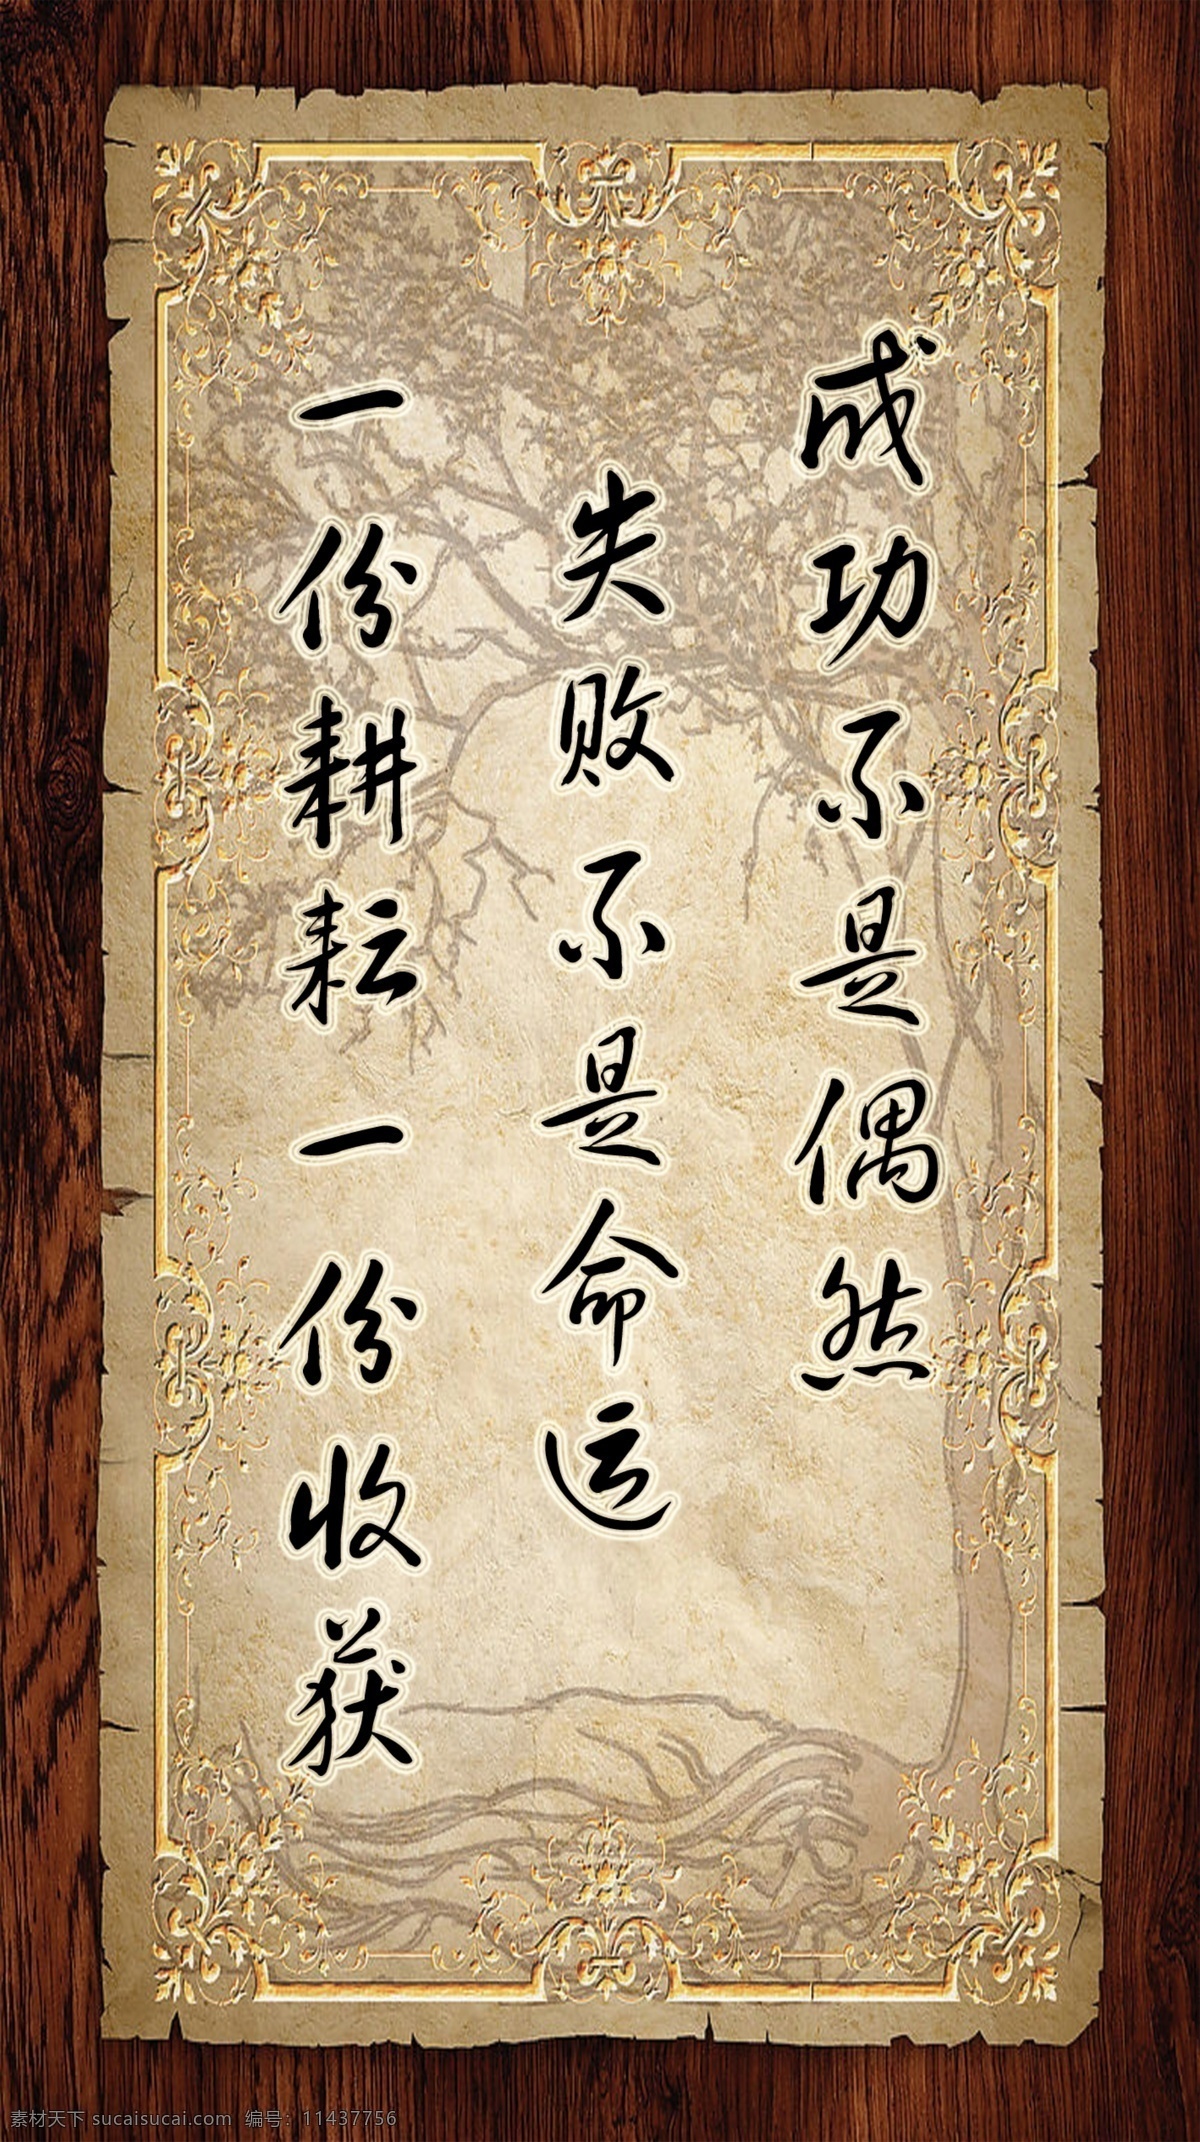 成功不是偶然
失败不是命运
一份耕耘一份收获
素材天下 sucaisucai.com 编号：11437756